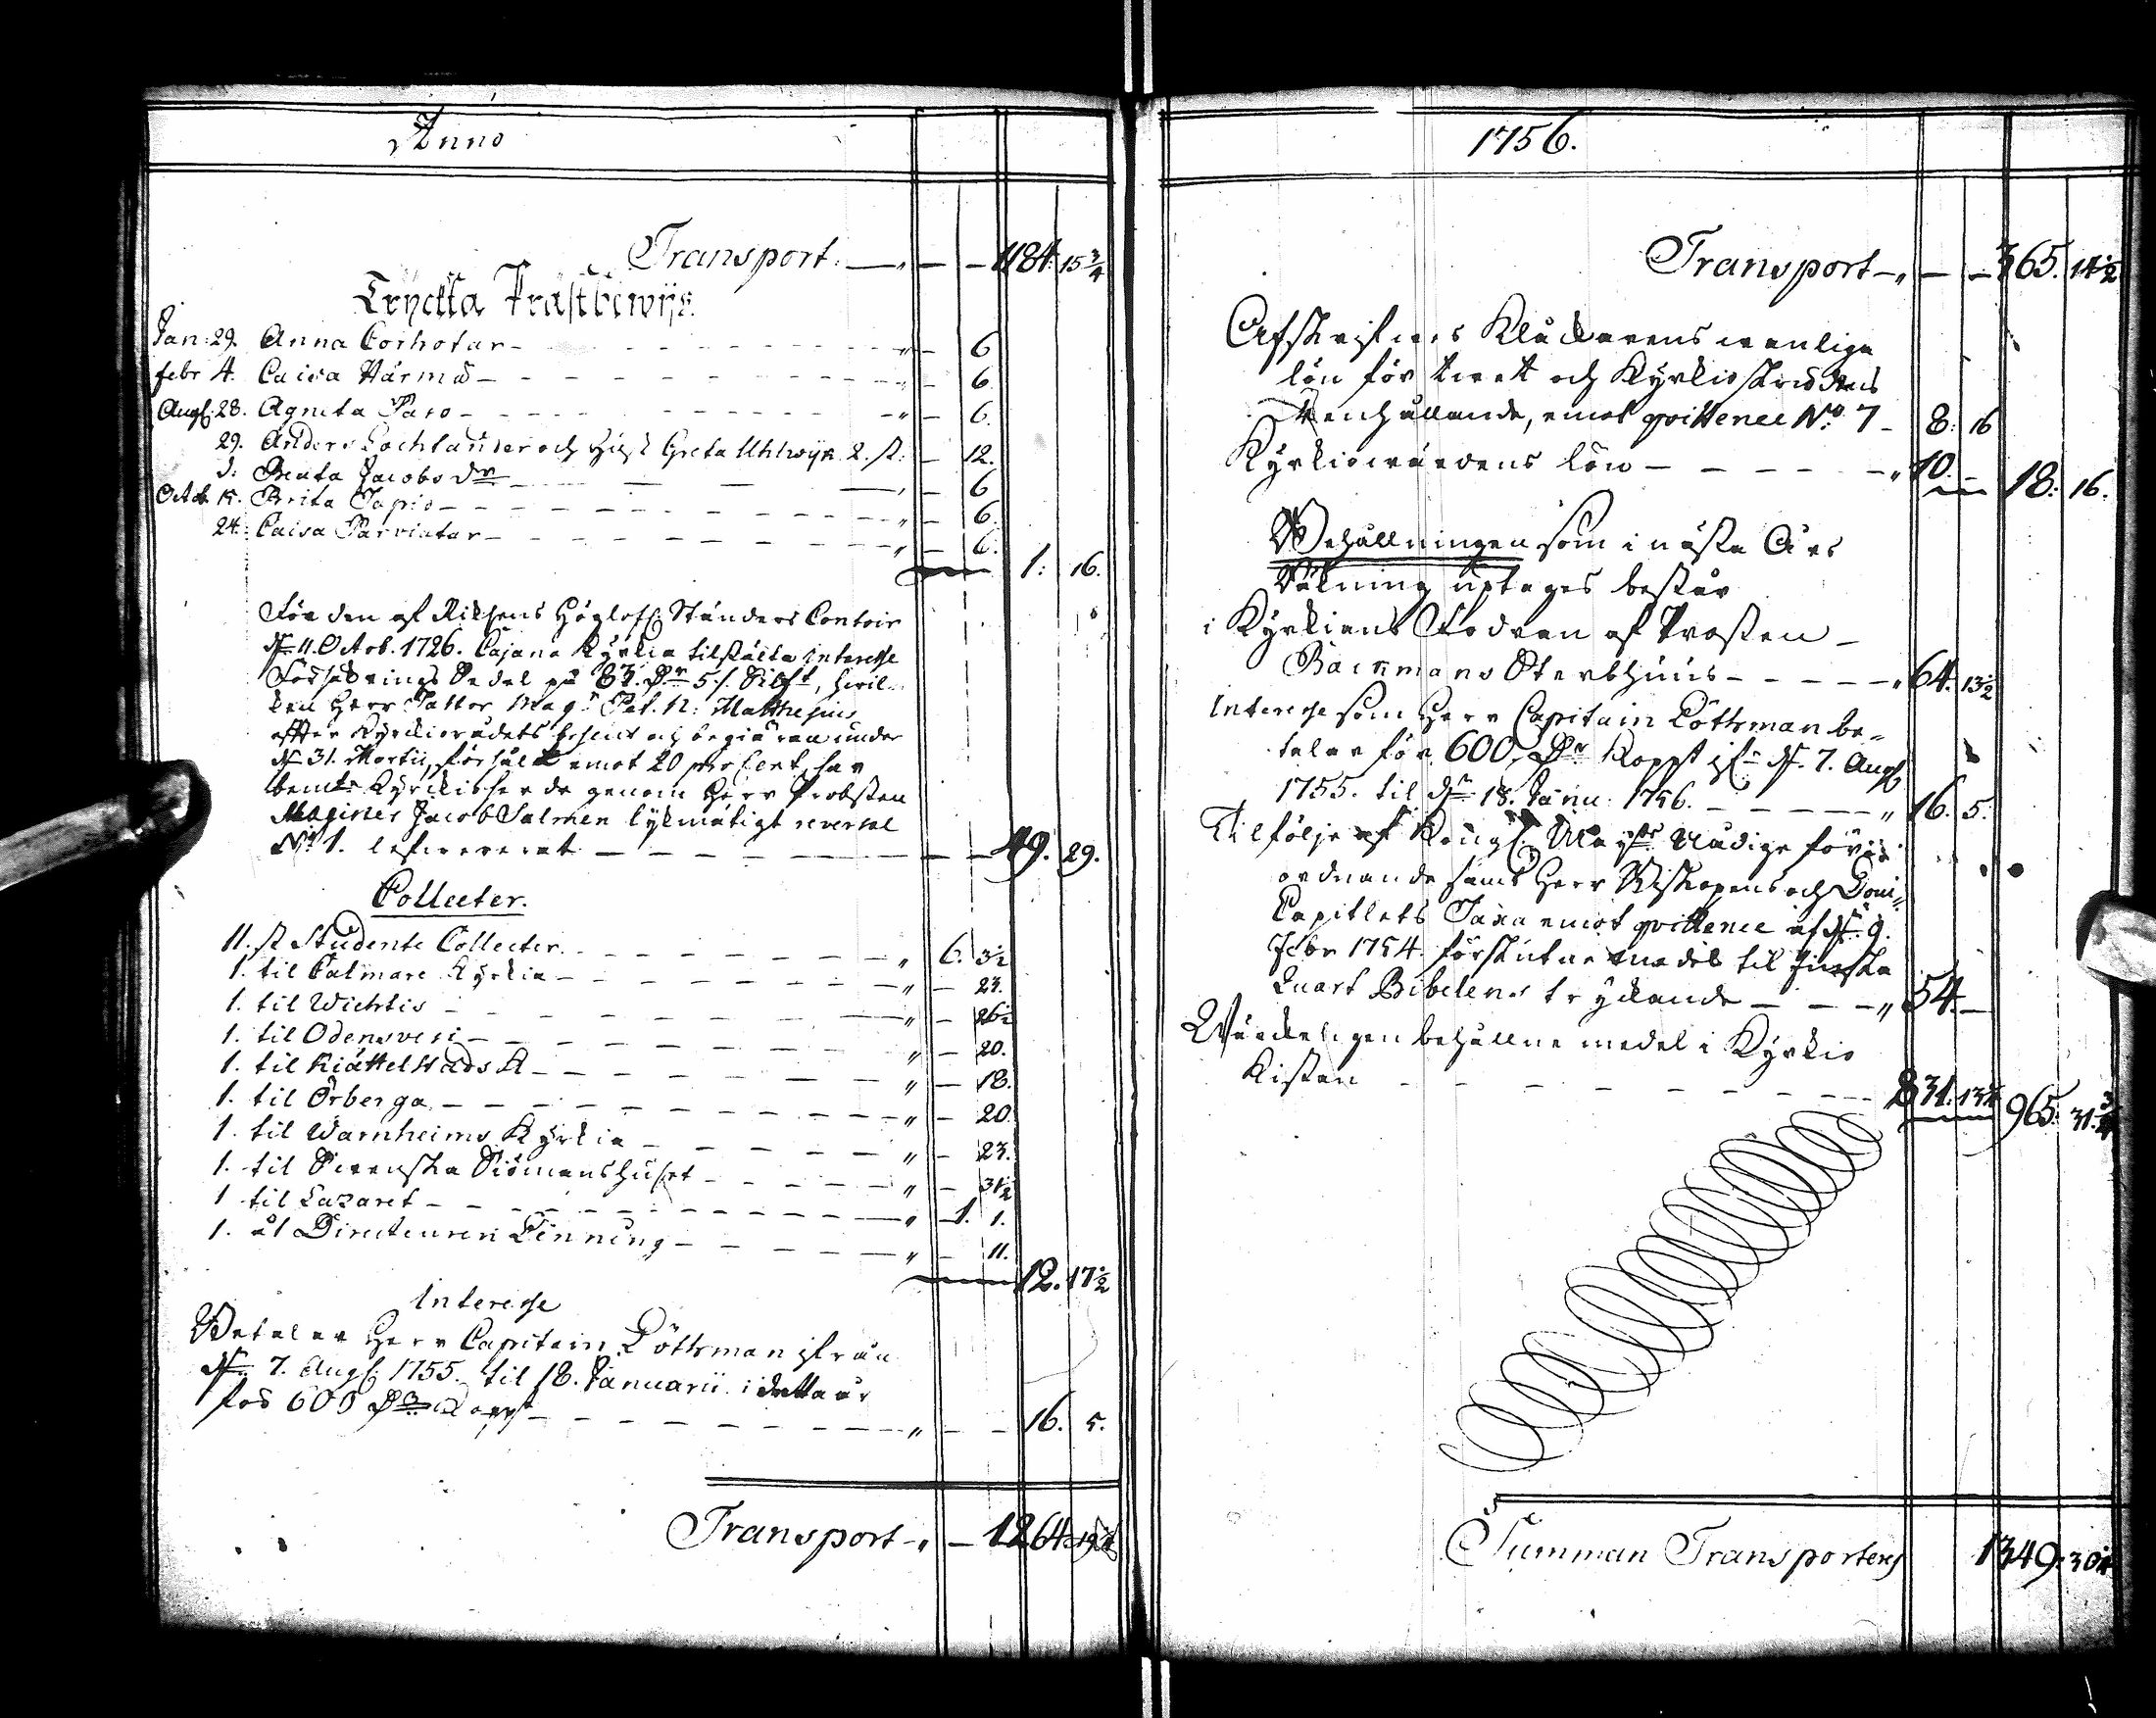 Anno
Transport. — „ — — 1184: 15 3/4
Tryckta Prästbewijs.
Jan: 29. Anna Corhotar — „ — 6
febr 4. Caisa Härmä — „ — 6.
Aug: 28. Agneta Paso — „ — 6.
29. Anders Lochlander och Hust Greta Uhlwijk 2. st: — 12.
d: Beata Jacobs dr — „ — 6
Octob. 15. Brita Tapio — „ — 6.
24. Caisa Parviatar — „ — 6.
1: 16.
För den af Riksens Höglofl: Ständers Contoir
d. 11. Octob. 1726. Cajana Kyrkia tilstälta Interesse
Försäkrings Sedel på 83. Dr 5 s. Silfrt, hwil-
ken Herr Pastor Mag: Pet. N: Mathesius
effter Kyrkiorådets beslut och begiäran under
d. 31. Martii, försålt emot 20 pro Cent, har
bemte Kyrkioherde genom Herr Probsten
Magister Jacob Salmen lijkmätigt reversal
No 1. lefwererat — — 49. 29.
Collecter.
11. st Studente Collecter. — „ 6. 3 1/2
1. til Calmare Kyrkia — „ — 23.
1. til Wichtis — „ — 26 1/2
1. til Odensvesi — „ — 20.
1. til Kiättelstads A — „ — 18.
1. til Örberga — „ — 20
1. til Warnheims Kyrkia — „ — 23.
1. til Swenska Siömanshuset — „ — 31 1/2
1 til Lazaret — „ — 1. 1.
1. åt Directeuren Linning — „ — 11.
12. 17 1/2
Interesse
Betalar Herr Capitain Löthman ifrån
d. 7. Aug: 1755. til 18. Januarii i detta år
för 600 Dr Koppt — „ — — 16. 5.
Transport — „ — 1264: 19
1756.
Transport — „ — — 365. 14 1/2
Afskrifwes Klåckarens wanliga
lön för twett och Kyrkioskrudens
renhållande, emot qvittence No 7 — 8: 16
Kyrkiowärdens lön — „ 10. —
18: 16.
Behållningen som i nästa Års
Räkning uptages består
i Kyrkians Fodran af Prosten —
Backmans Sterbhuus — „ 64. 13 1/2
Interesse som Herr Capitain Löthman be-
talar för 600, Dr Koppt ifr. d. 7. Aug:
1755. til d. 18. Janu: 1756. — „ 16. 5.
Til följe af Kongl. Mayts Nådige för-
ordnande samt Herr Biskopens och Dom-
Capitlets Taxa emot qvittence af d. 9.
Febr 1754. förskutne medel til finska
Quart Bibelens tryckande — „ 54. —
Wärckeligen behållne medel i Kyrkio
Kistan — 831. 13 1/4
965: 31 3/4
Summan Transporteras 1349: 30 1/4